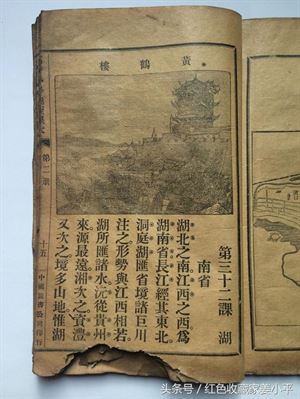 黃鶴樓
第三十二課 湖
南省
湖北之南江西之西爲
湖南省長江經其東北
洞庭湖匯省境諸巨川
注之形勢與江西相若
湖所匯諸水沅從貴州
來源最遠湘次之資澧
又次之境多山地惟湖
第二册
十五
中國圖書公司印行
头条号／红色收藏家姜小平